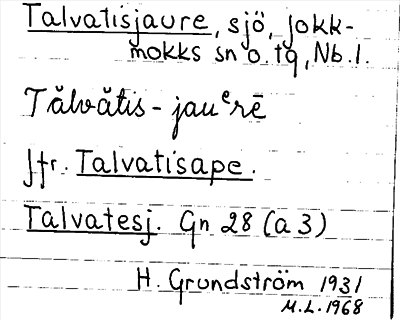 Talvatisjaure, sjö, Jokk-
mokks sn o. tg, Nb. l.
Tǎlvǎtis-jauᵉrē
Jfr. Talvatisape.
Talvatesj. Gn 28 (a 3)
H. Grundström 1931
M.L. 1968